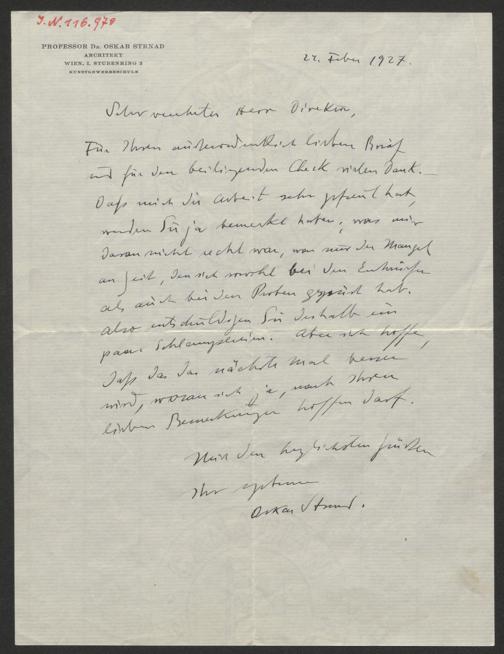 J.N. 116.978
PROFESSOR DR. OSKAR STRNAD
ARCHITEKT
WIEN, I. STUBENRING 3
KUNSTGEWERBESCHULE
22. Feber 1927.
Sehr verehrter Herr Direktor,
Für Ihren außerordentlich lieben Brief
und für den beiliegenden Check vielen Dank. —
Daß mich die Arbeit sehr gefreut hat,
werden Sie ja bemerkt haben, was mir
daran nicht recht war, war nur der Mangel
an Zeit, den ich sowohl bei den Entwürfen
als auch bei den Proben gespürt hab.
Also entschuldigen Sie deshalb ein
paar Schlampereien. Aber ich hoffe,
daß das das nächste Mal besser
wird, woran ich ja, nach Ihren
lieben Bemerkungen hoffen darf.
Mit den herzlichsten Grüßen
Ihr ergebener
Oskar Strnad.